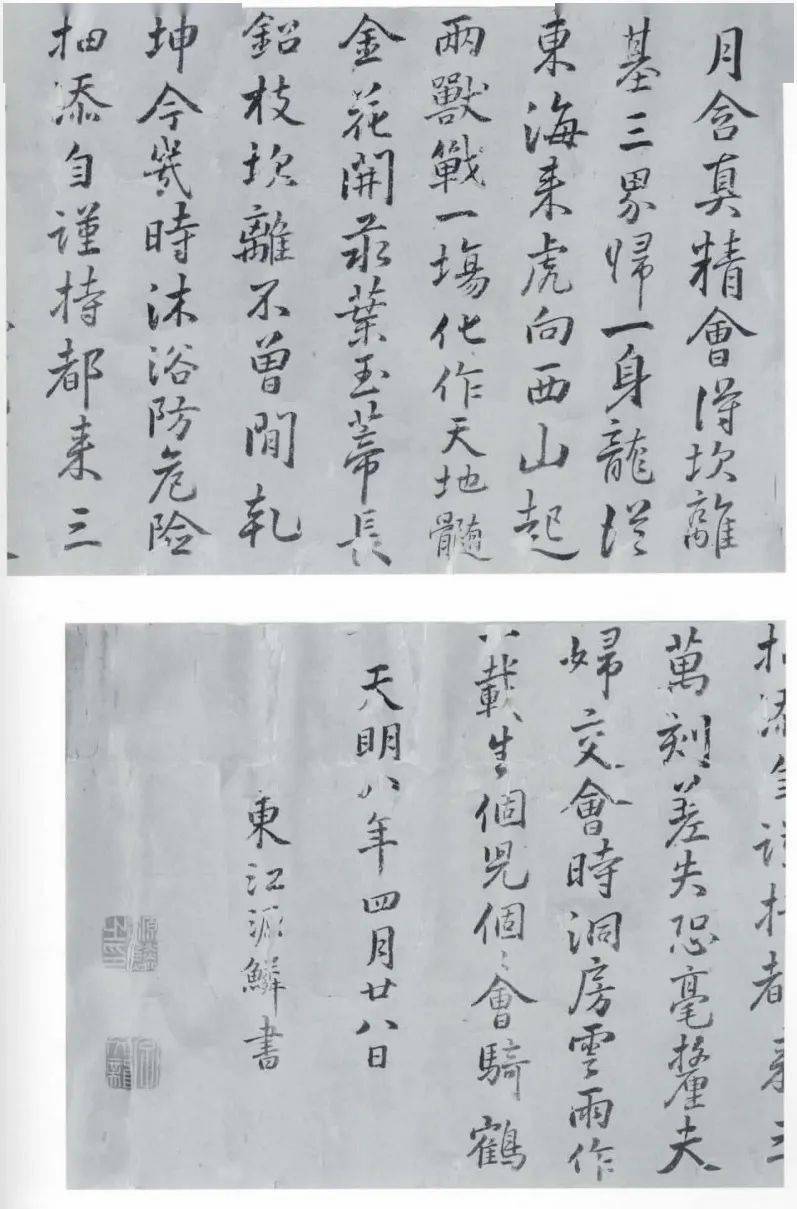 月含真精會得坎離
基三界歸一身龍從
東海来虎向西山起
兩獸戰一場化作天地髓
金花開汞葉玉蒂長
鉛枝坎離不曽間乾
坤今幾時沐浴防危險
抽添自謹持都来三
抽添自謹持都来三
萬刻差失恐毫釐夫
婦交會時洞房雲雨作
一載生個児個〻會騎鶴
天明八年四月廿八日
東江源鱗書